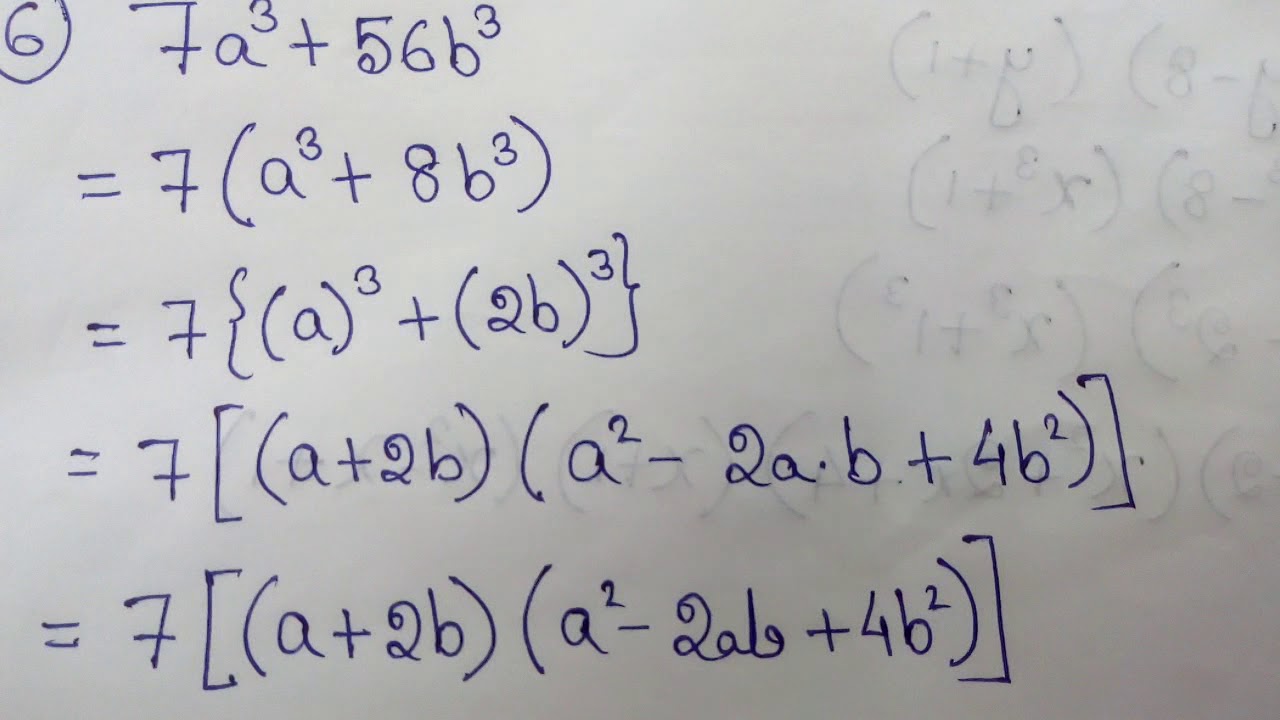 6) 7a³ + 56b³
= 7(a³ + 8b³)
= 7{(a)³ + (2b)³}
= 7[(a+2b)(a² - 2a·b + 4b²)].
= 7[(a+2b)(a² - 2ab + 4b²)]